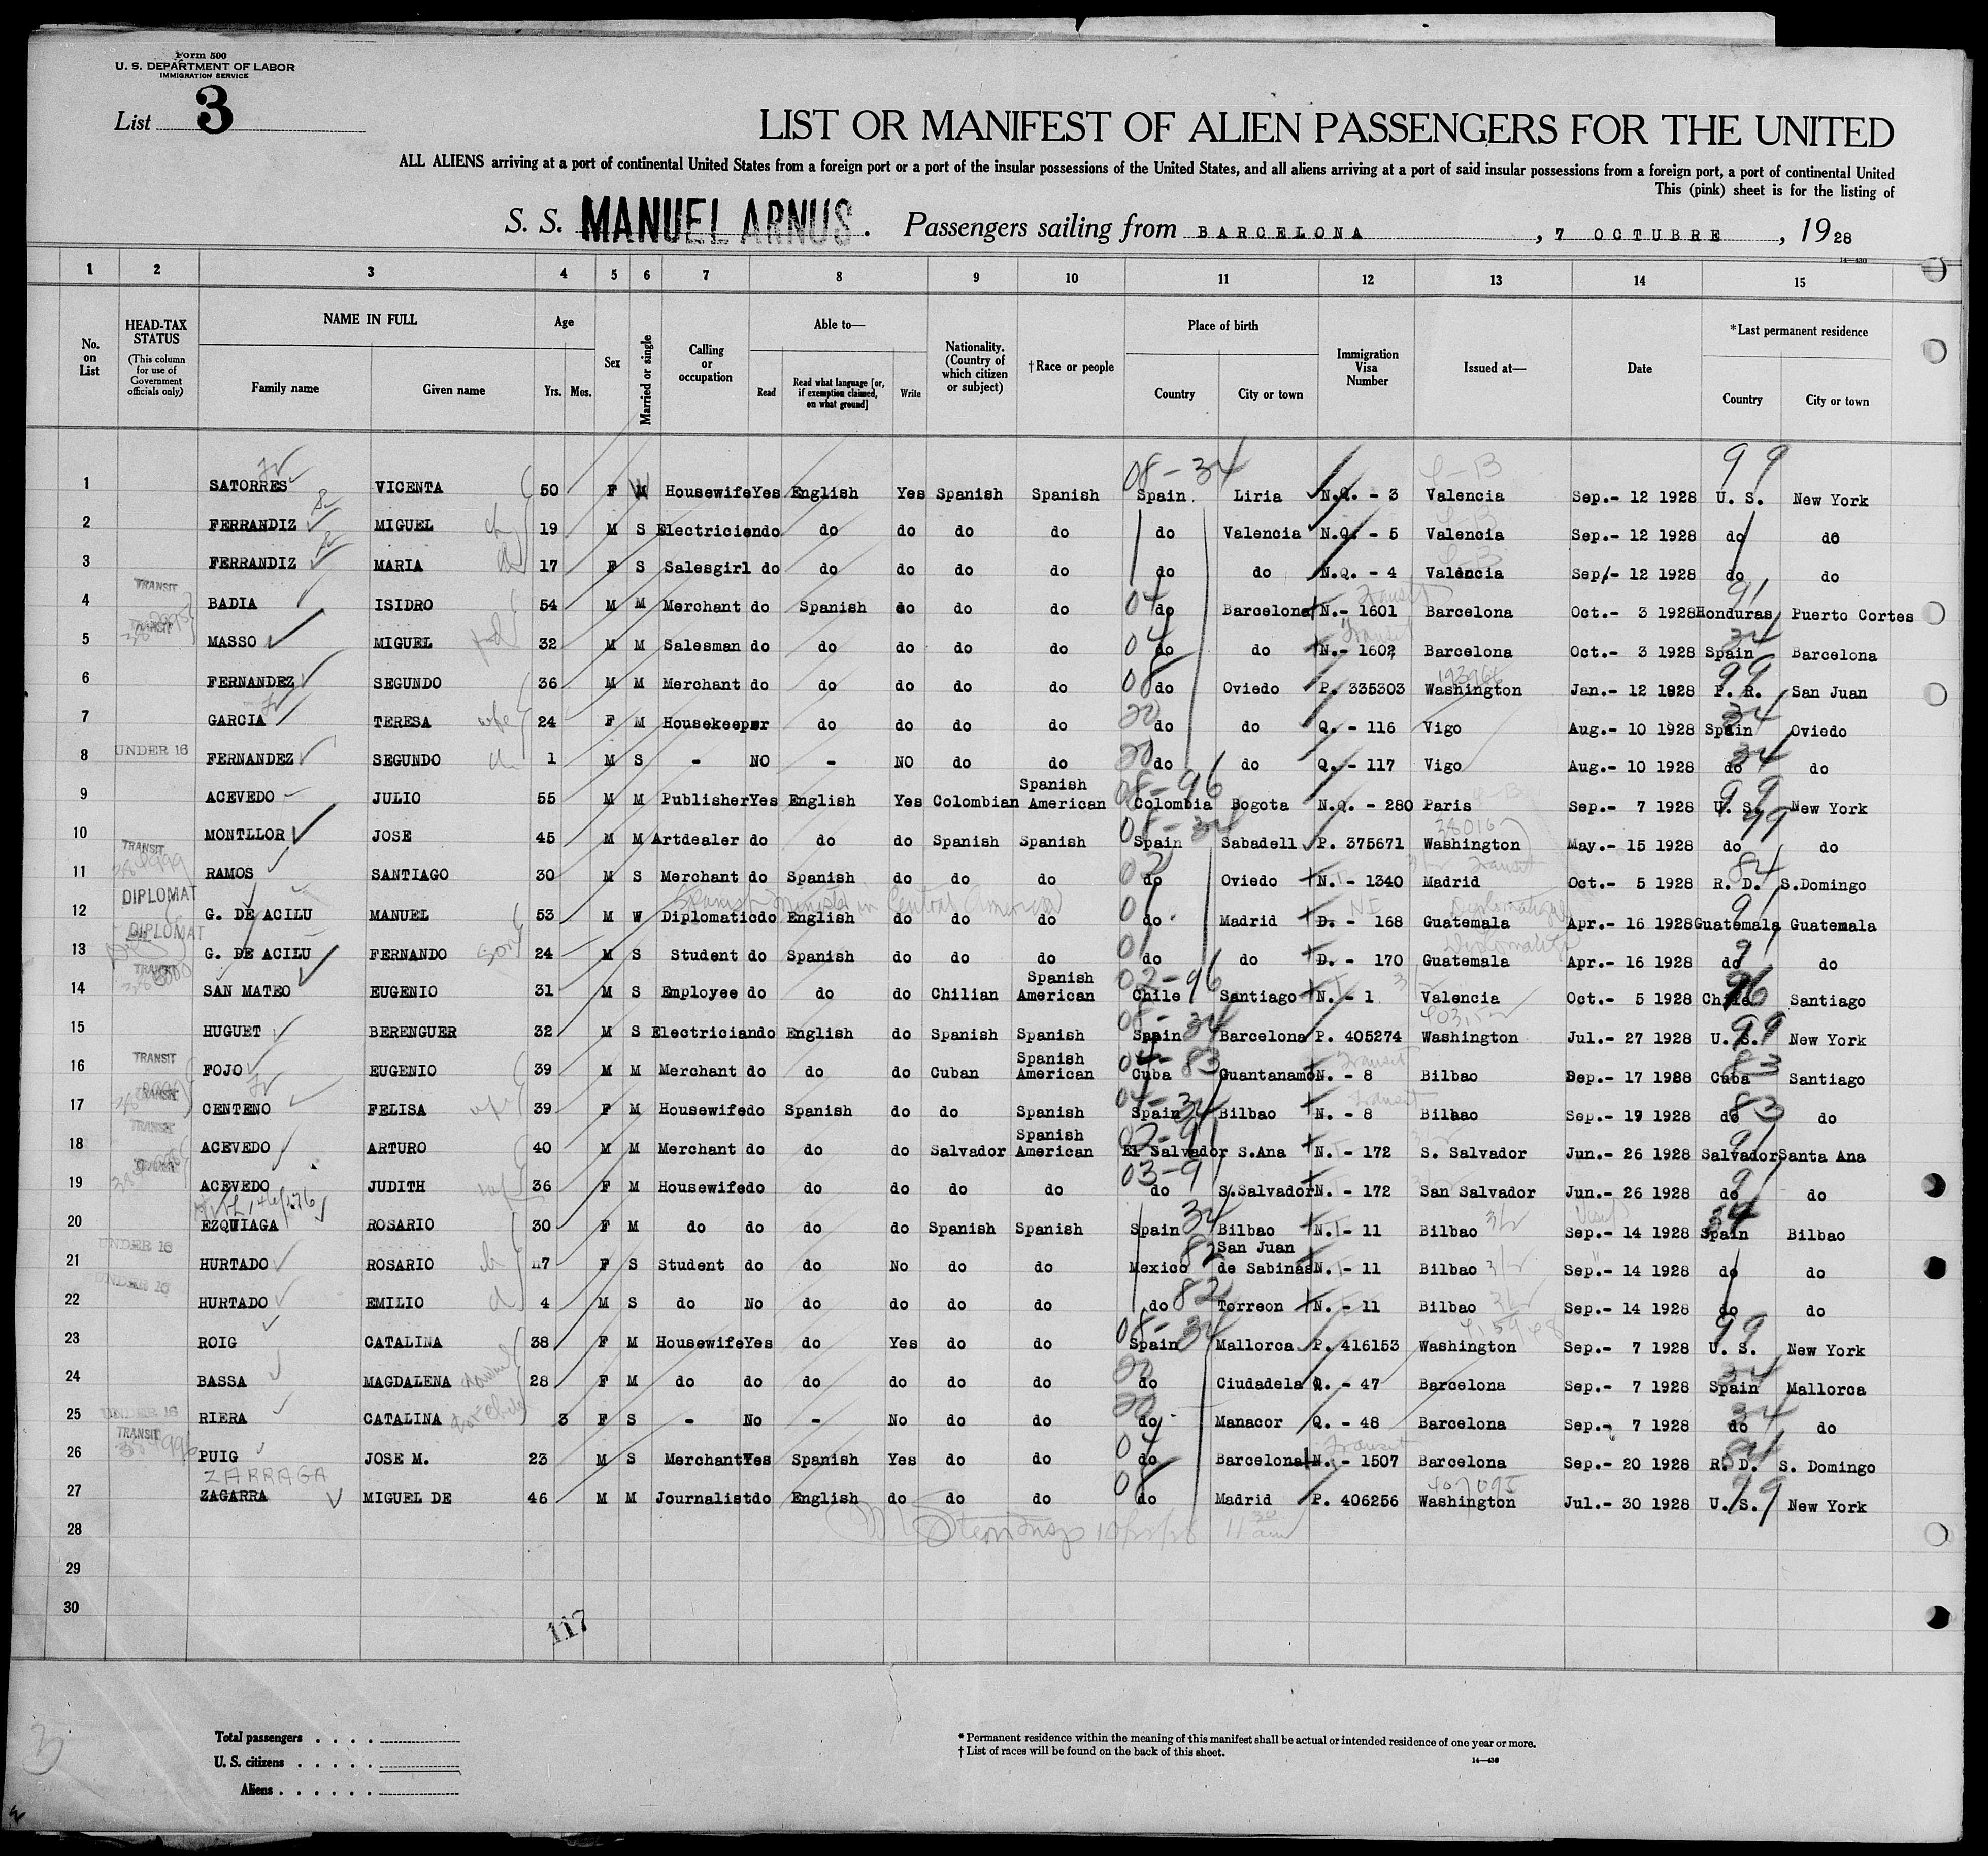 Form 500
U. S. DEPARTMENT OF LABOR
IMMIGRATION SERVICE
List 3
LIST OR MANIFEST OF ALIEN PASSENGERS FOR THE UNITED
ALL ALIENS arriving at a port of continental United States from a foreign port or a port of the insular possessions of the United States, and all aliens arriving at a port of said insular possessions from a foreign port, a port of continental United
This (pink) sheet is for the listing of
S. S. MANUEL ARNUS. Passengers sailing from BARCELONA, 7 OCTUBRE, 1928
14—430
1 2 3 4 5 6 7 8 9 10 11 12 13 14 15
No. on List
HEAD-TAX STATUS (This column for use of Government officials only)
NAME IN FULL
Family name Given name
Age
Yrs. Mos.
Sex
Married or single
Calling or occupation
Able to—
Read
Read what language [or, if exemption claimed, on what ground]
Write
Nationality. (Country of which citizen or subject)
†Race or people
Place of birth
Country City or town
Immigration Visa Number
Issued at—
Date
*Last permanent residence
Country City or town
1 SATORRES VICENTA 50 F M Housewife Yes English Yes Spanish Spanish 08-34 Spain. Liria N.Q. - 3 Valencia Sep.- 12 1928 99 U. S. New York
2 FERRANDIZ MIGUEL 19 M S Electricien do do do do do do Valencia N.Q. - 5 Valencia Sep.- 12 1928 do do
3 FERRANDIZ MARIA 17 F S Salesgirl do do do do do do do N.Q. - 4 Valencia Sep.- 12 1928 do do
4 TRANSIT BADIA ISIDRO 54 M M Merchant do Spanish do do do 04 do Barcelona N.- 1601 Transit Barcelona Oct.- 3 1928 91 Honduras Puerto Cortes
5 TRANSIT MASSO MIGUEL 32 M M Salesman do do do do do 04 do do N.- 1602 Transit Barcelona Oct.- 3 1928 34 Spain Barcelona
6 FERNANDEZ SEGUNDO 36 M M Merchant do do do do do 08 do Oviedo P. 335303 Washington Jan.- 12 1928 99 P. R. San Juan
7 GARCIA TERESA wife 24 F M Housekeeper do do do do 20 do do Q. - 116 Vigo Aug.- 10 1928 34 Spain Oviedo
8 UNDER 16 FERNANDEZ SEGUNDO 1 M S - NO - NO do do 20 do do Q. - 117 Vigo Aug.- 10 1928 34 do do
9 ACEVEDO JULIO 55 M M Publisher Yes English Yes Colombian Spanish American 08-96 Colombia Bogota N.Q. - 280 Paris Sep.- 7 1928 99 U. S. New York
10 MONTLLOR JOSE 45 M M Artdealer do do do Spanish Spanish 08-34 Spain Sabadell P. 375671 Washington May.- 15 1928 99 do do
11 TRANSIT RAMOS SANTIAGO 30 M S Merchant do Spanish do do do 02 do Oviedo N. - 1340 Madrid Transit Oct.- 5 1928 84 R. D. S.Domingo
Spanish Minister in Central America
12 DIPLOMAT G. DE ACILU MANUEL 53 M W Diplomatic do English do do do 01 do Madrid D. - 168 Guatemala Apr.- 16 1928 91 Guatemala Guatemala
13 DIPLOMAT G. DE ACILU FERNANDO son 24 M S Student do Spanish do do do 01 do do D. - 170 Guatemala Apr.- 16 1928 91 do do
14 TRANSIT SAN MATEO EUGENIO 31 M S Employee do do do Chilian Spanish American 02-96 Chile Santiago N. - 1 Valencia Oct.- 5 1928 96 Chile Santiago
15 HUGUET BERENGUER 32 M S Electrician do English do Spanish Spanish 08-34 Spain Barcelona P. 405274 Washington Jul.- 27 1928 99 U. S. New York
16 TRANSIT FOJO EUGENIO 39 M M Merchant do do do Cuban Spanish American 04-83 Cuba Guantanamo N. - 8 Transit Bilbao Sep.- 17 1928 83 Cuba Santiago
17 TRANSIT CENTENO FELISA wife 39 F M Housewife do Spanish do do Spanish 04-34 Spain Bilbao N. - 8 Transit Bilbao Sep.- 17 1928 83 do do
18 TRANSIT ACEVEDO ARTURO 40 M M Merchant do do do Salvador Spanish American 02-91 El Salvador S.Ana N. - 172 S. Salvador Jun.- 26 1928 91 Salvador Santa Ana
19 TRANSIT ACEVEDO JUDITH 36 F M Housewife do do do do do 03-91 do S.Salvador N. - 172 San Salvador Jun.- 26 1928 91 do do
20 EZQUIAGA ROSARIO 30 F M do do do do Spanish Spanish Spain 34 Bilbao N. - 11 Bilbao Sep.- 14 1928 34 Spain Bilbao
21 UNDER 16 HURTADO ROSARIO 7 F S Student do do No do do Mexico 82 San Juan de Sabinas N. - 11 Bilbao Sep.- 14 1928 do do
22 UNDER 16 HURTADO EMILIO 4 M S do No do do do do do 82 Torreon N. - 11 Bilbao Sep.- 14 1928 do do
23 ROIG CATALINA 38 F M Housewife Yes do Yes do do 08-34 Spain Mallorca P. 416153 Washington Sep.- 7 1928 99 U. S. New York
24 BASSA MAGDALENA 28 F M do do do do do do 20 do Ciudadela Q. - 47 Barcelona Sep.- 7 1928 34 Spain Mallorca
25 UNDER 16 RIERA CATALINA 3 F S - No - No do do 20 do Manacor Q. - 48 Barcelona Sep.- 7 1928 34 do do
26 TRANSIT PUIG JOSE M. 23 M S Merchant Yes Spanish Yes do do 04 do Barcelona N. - 1507 Transit Barcelona Sep.- 20 1928 84 R. D. S. Domingo
ZARRAGA
27 ZAGARRA MIGUEL DE 46 M M Journalist do English do do do 08 do Madrid P. 406256 Washington Jul.- 30 1928 99 U. S. New York
28
29
30
117
Total passengers
U. S. citizens
Aliens
* Permanent residence within the meaning of this manifest shall be actual or intended residence of one year or more.
† List of races will be found on the back of this sheet.
14—430